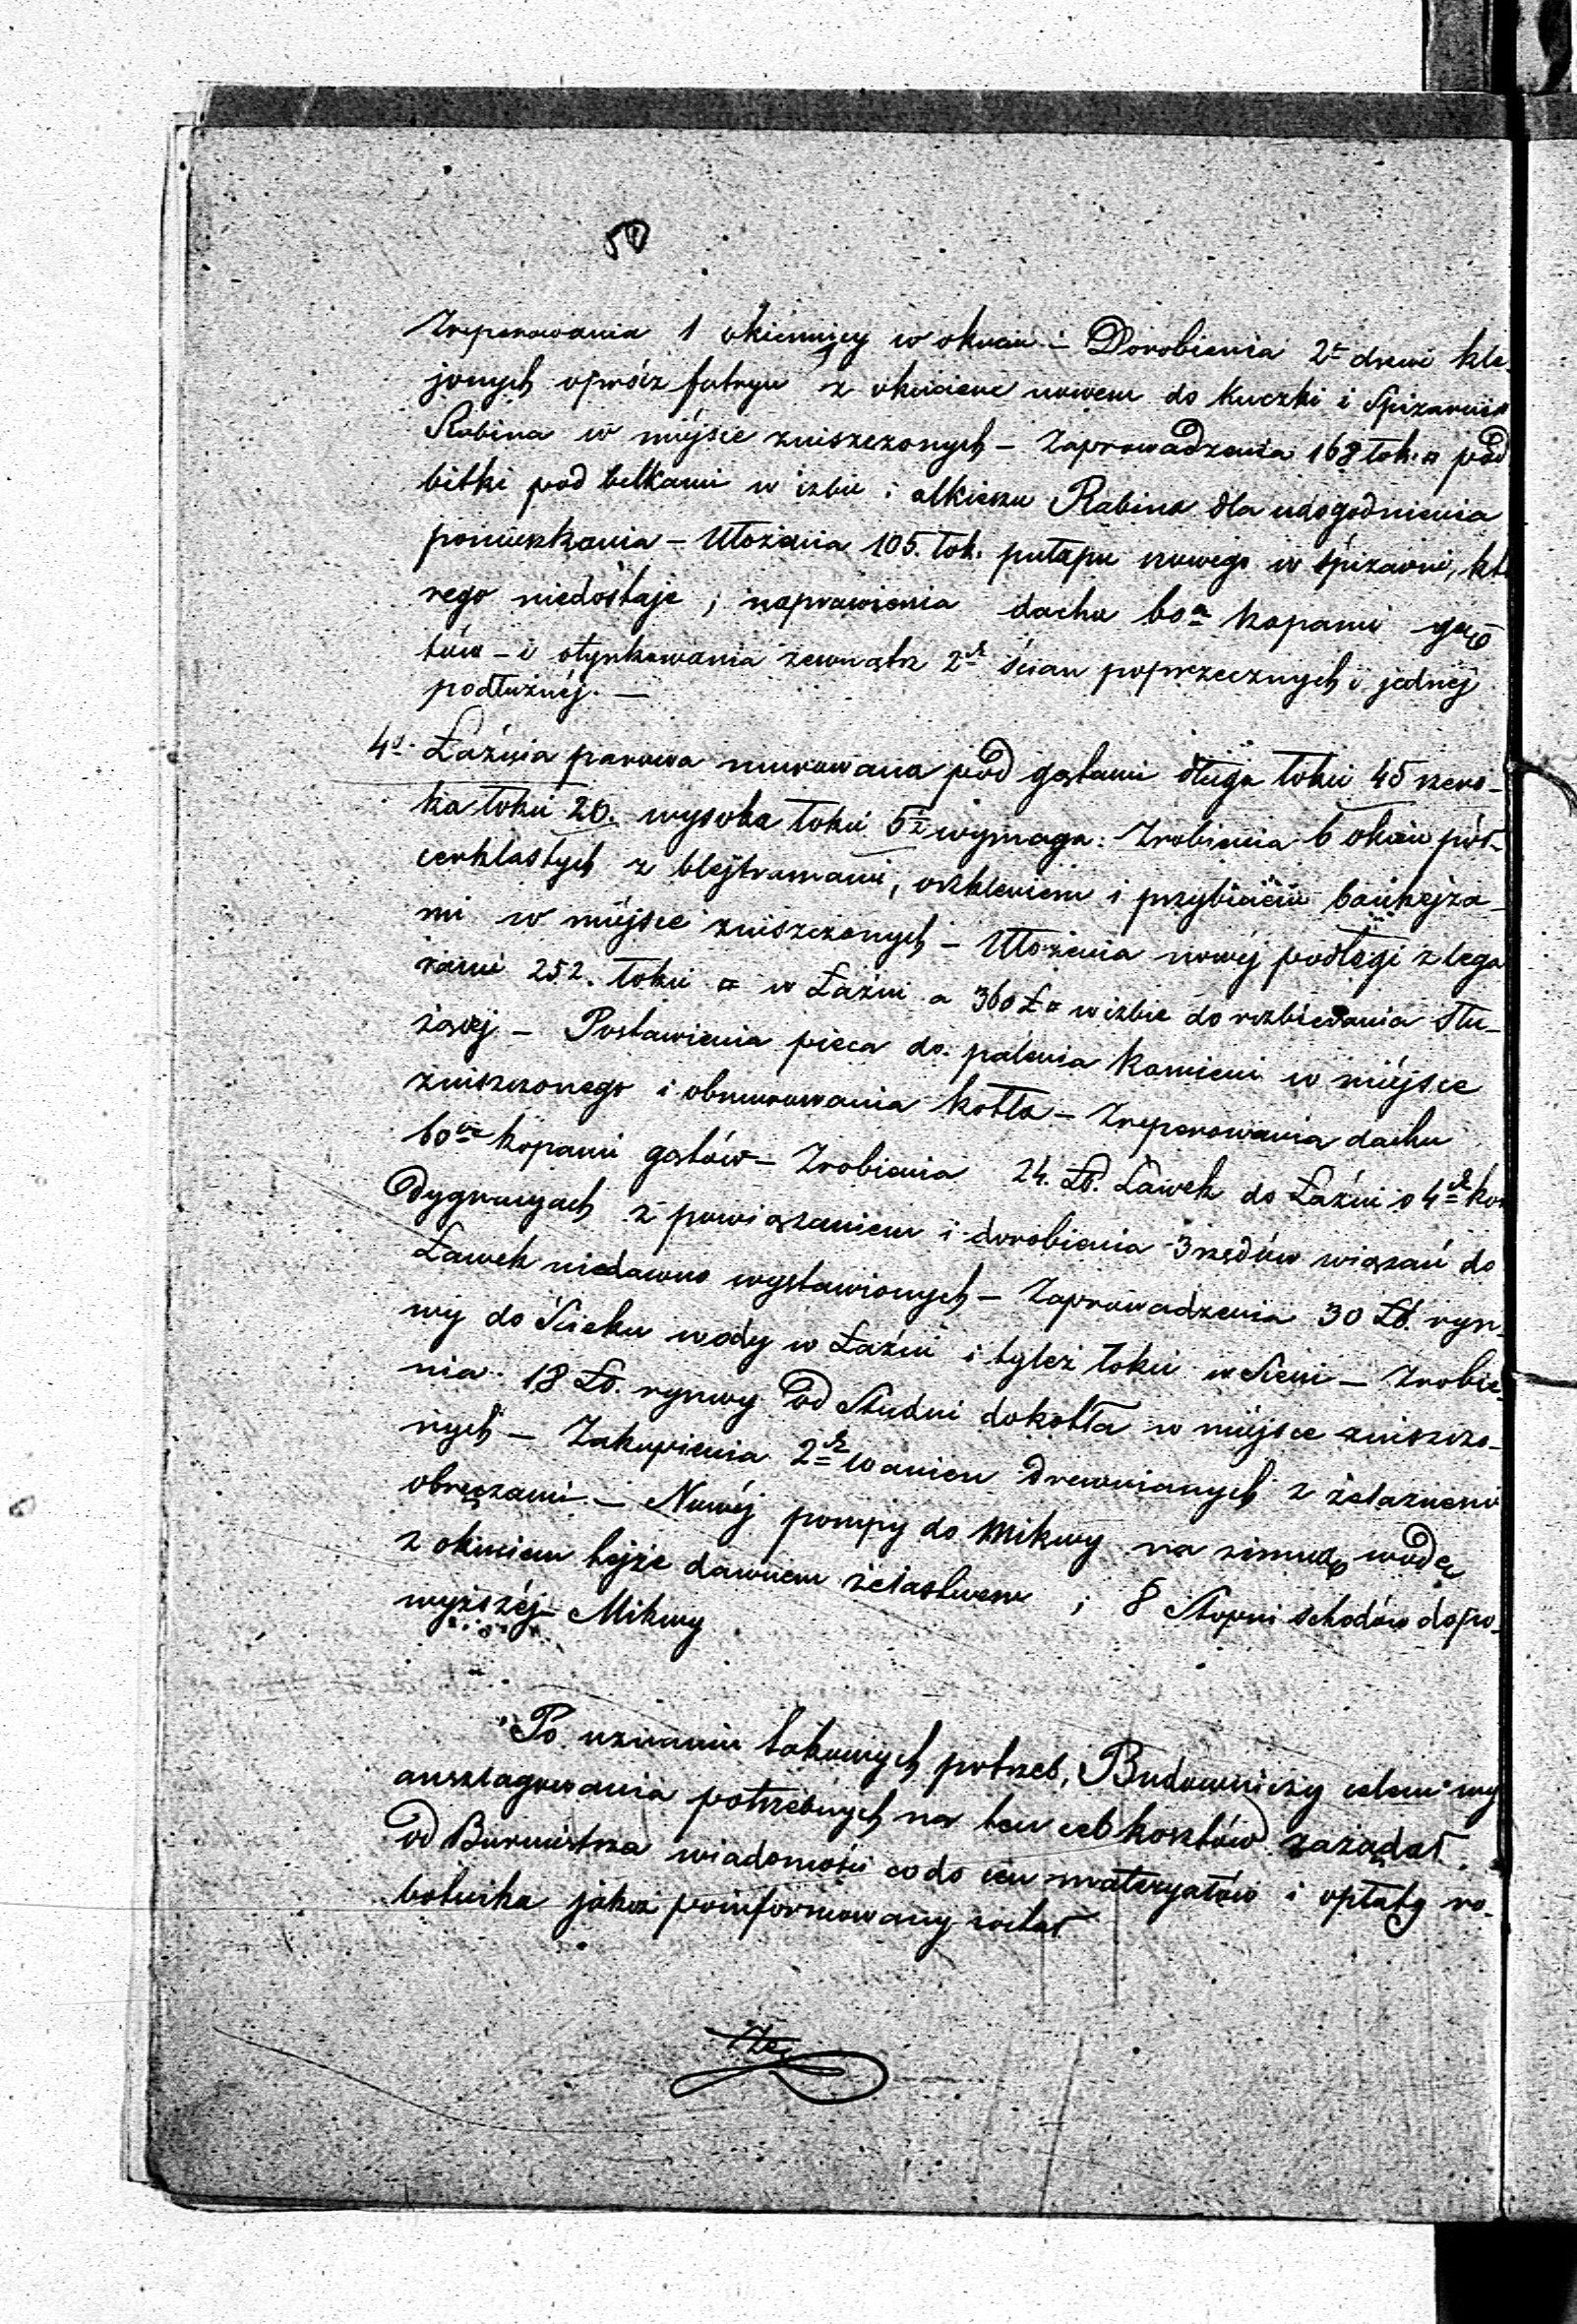 Zreperowania 1 okiennicy w okuciu – Dorobienia 2ch drzwi kle-
jonych oprócz futryn z okuciem nowem do kuczki i Spizarni
Rabina w miéjsce zniszczonych – Zaprowadzenia 168 łok. □ pod
bitki pod belkami w izbie i alkierzu Rabina dla udogodnienia
pomieszkania – Ułożenia 105. łok. pułapu nowego w spizarni, któ
rego niedostaje ; naprawienia dachu 60a kopami gą
tów – i otynkowania zewnątrz 2ch ścian poprzecznych i jednéj
podłużnéj. –
4o. Łaźnia parowa murowana pod gątami długa łokci 45 szero-
ka łokci 20. wysoka łokci 5½ wymaga: Zrobienia 6 okien pół-
cerklastych z blejtramami, oszkleniem i przybiciem bankejza-
mi w miéjsce zniszczonych – Ułożenia nowéj podłogi z lega
rami 252. łokci □ w Łaźni a 360 Ł □ w izbie do rozbierania słu-
żącej – Postawienia pieca do palenia kamieni w miéjsce
zniszczonego i obmurowania kotła – Zreperowania dachu
60a kopami gątów – Zrobienia 24. Łd. Ławek do Łaźni o 4ch kon
dygnacyach z powiązaniem i dorobienia 3 rzędów wiązań do
Ławek niedawno wystawionych – Zaprowadzenia 30 Łd. ryn-
wy do Ścieku wody w Łaźni i tyleż łokci w Sieni – Zrobie-
nia 18 Łd. rynwy od Studni do kotła w miéjsce zniszczo-
nych – Zakupienia 2ch wanien drewnianych z żelaznemi
obręczami – Nowéj pompy do Mikwy na zimną wodę
z okuciem tejże dawnem żelastwem ; 8 Stopni schodów do po-
wyższéj Mikwy
Po uznaniu takowych potrzeb, Budowniczy celem wy
anszlagowania potrzebnych na ten cel kosztów zażądał
od Burmistrza wiadomości co do cen materyałów i opłaty ro-
botnika jakoż poinformowany został